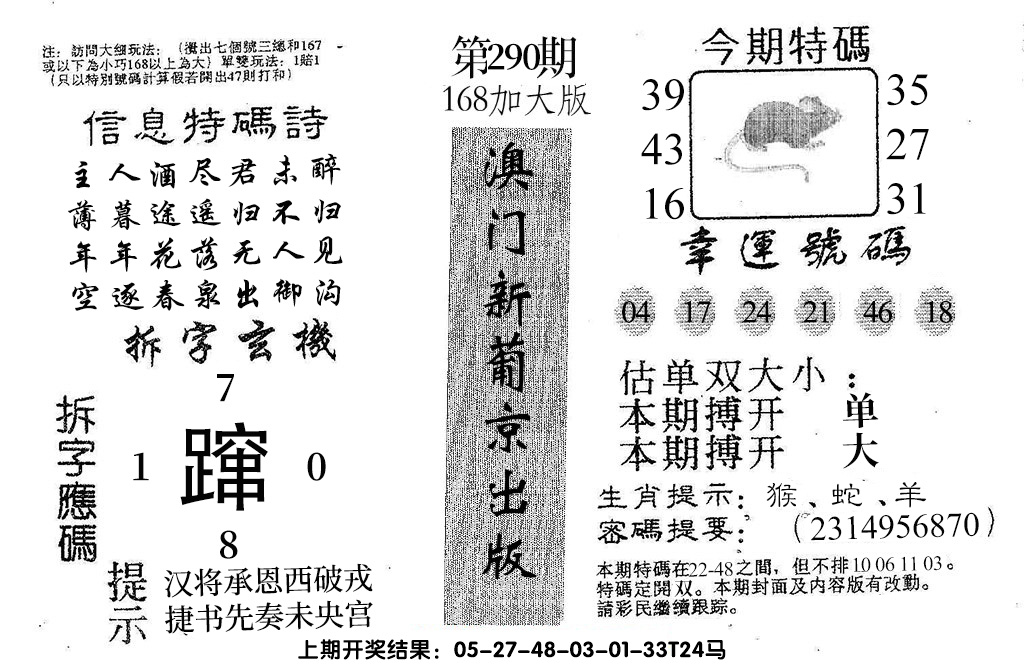 注：訪問大细玩法：（攪出七個號三總和167
或以下為小巧168以上為大）單雙玩法：1賠1
（只以特別號碼計算假若開出47則打和）
信息特碼詩
主人酒尽君未醉
薄暮途遥归不归
年年花落无人见
空逐春泉出御沟
拆字玄機
拆字應碼
7
1 蹿 0
8
提示
汉将承恩西破戎
捷书先奏未央宫
第290期
168加大版
澳门新葡京出版
今期特碼
39 35
43 27
16 31
幸運號碼
04 17 24 21 46 18
估单双大小：
本期搏开 单
本期搏开 大
生肖提示：猴、蛇、羊
密碼提要：（2314956870）
本期特碼在22-48之間，但不排10 06 11 03。
特碼定開双。本期封面及内容版有改動。
請彩民繼續跟踪。
上期开奖结果：05-27-48-03-01-33T24马